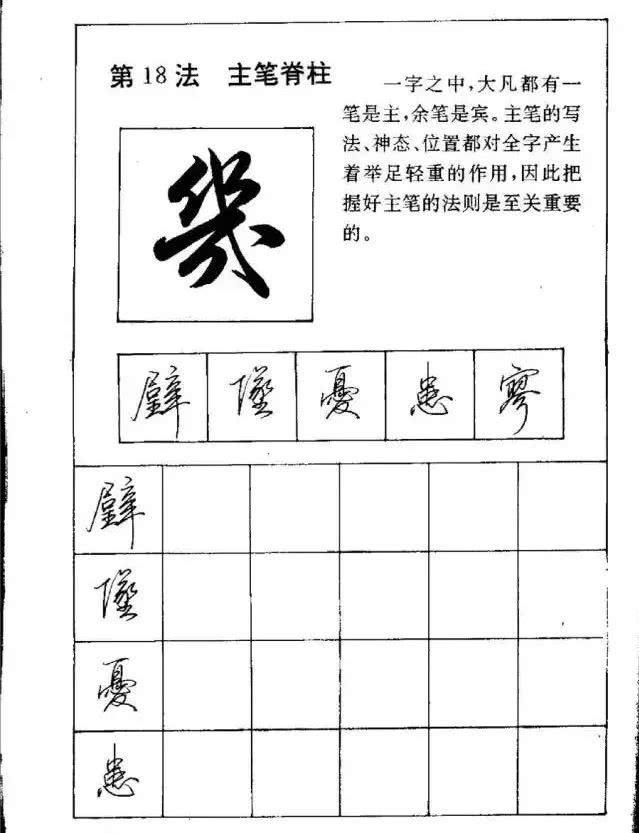 第18法 主笔脊柱
一字之中,大凡都有一
笔是主,余笔是宾。主笔的写
法、神态、位置都对全字产生
着举足轻重的作用,因此把
握好主笔的法则是至关重要
的。
幾
壁 墜 憂 患 寥
壁
墜
憂
患